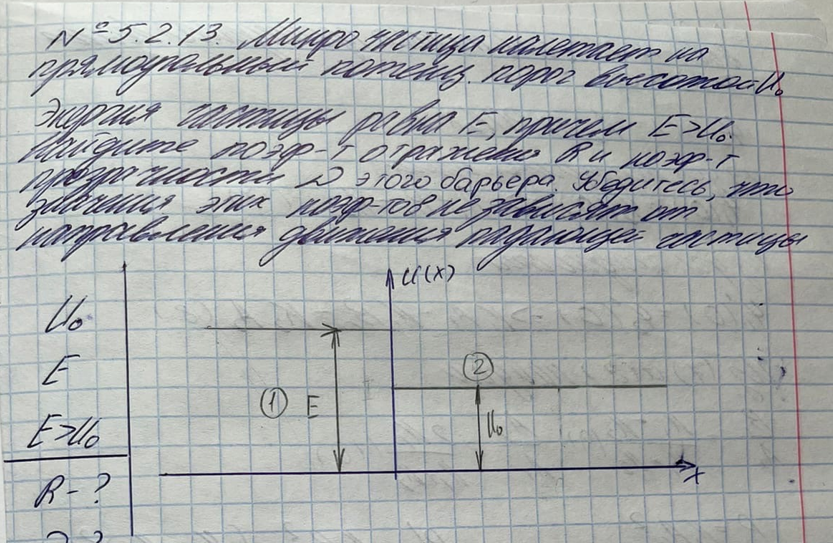 №5.2.13. Микрочастица налетает на
прямоугольный потенц. порог высотой U₀
Энергия частицы равна E, причем E>U₀.
Найдите коэф-т отражения R и коэф-т
прозрачности D этого барьера. Убедитесь, что
значения этих коэф-тов не зависят от
направления движения падающей частицы
U(x)
U₀
E
E>U₀
R-?
D-?
①
E
②
U₀
x